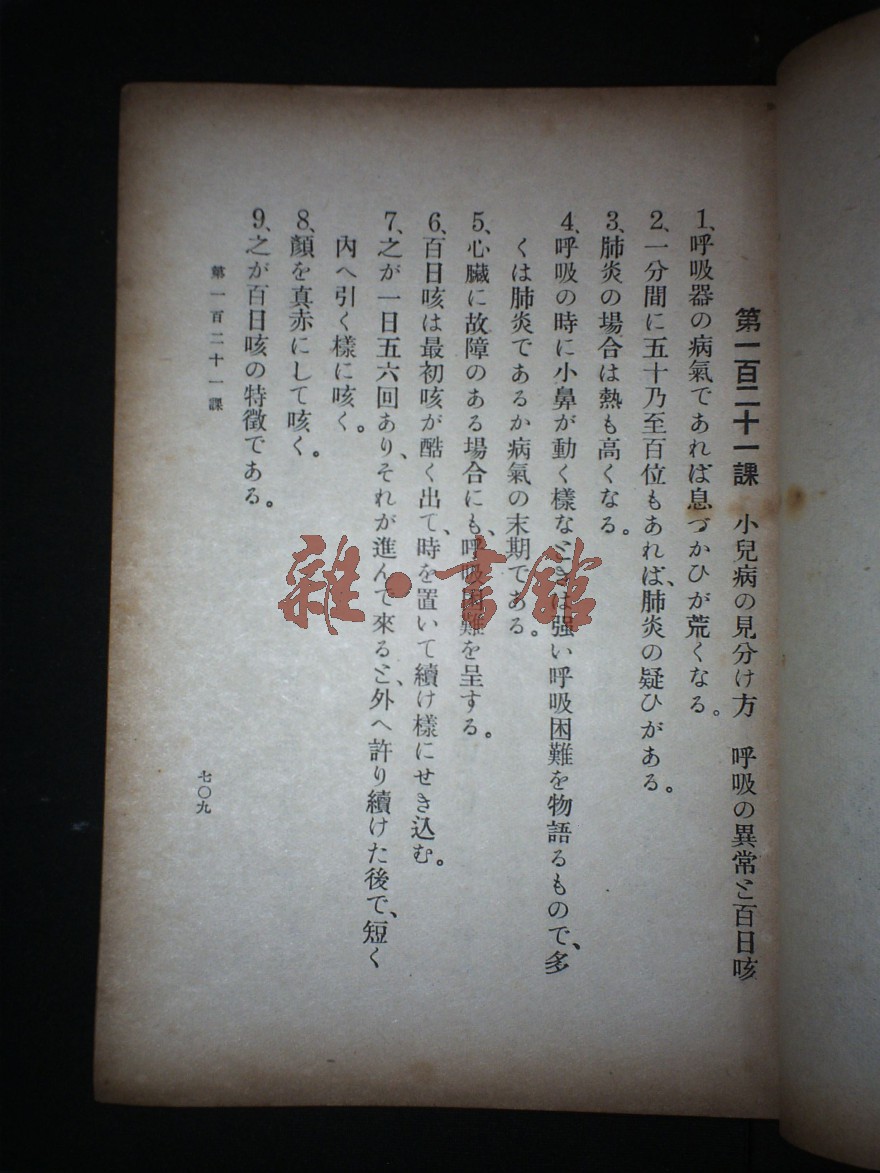 第一百二十一課　小兒病の見分け方　呼吸の異常と百日咳
1、呼吸器の病氣であれば息づかひが荒くなる。
2、一分間に五十乃至百位もあれば、肺炎の疑ひがある。
3、肺炎の場合は熱も高くなる。
4、呼吸の時に小鼻が動く樣なときは强い呼吸困難を物語るもので、多
くは肺炎であるか病氣の末期である。
5、心臟に故障のある場合にも、呼吸困難を呈する。
6、百日咳は最初咳が酷く出て、時を置いて續け樣にせき込む。
7、之が一日五六回あり、それが進んで來ると、外へ許り續けた後で、短く
內へ引く樣に咳く。
8、顏を真赤にして咳く。
9、之が百日咳の特徵である。
第一百二十一課
七〇九
雜・書館